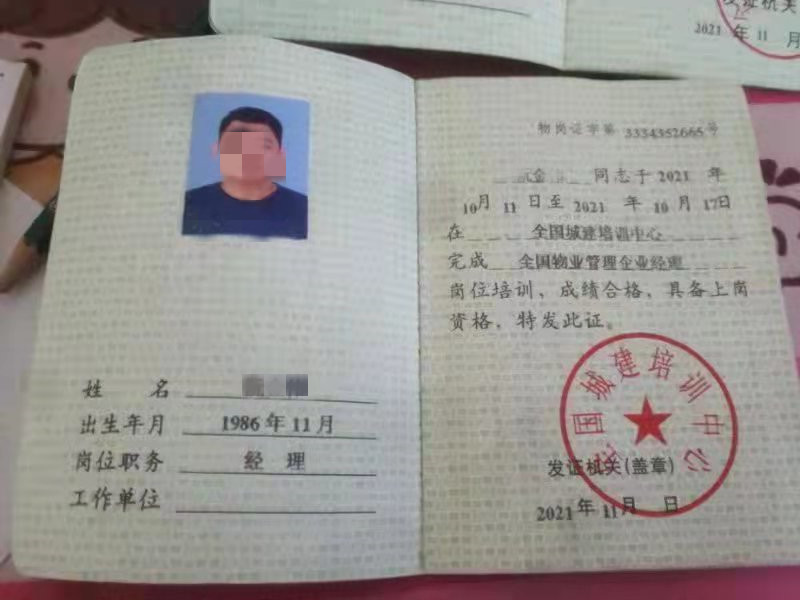 发证机关
2021 年 11 月
姓 名
出生年月 1986年11月
岗位职务 经 理
工作单位
物岗证字第 3334352665号
同志于 2021 年
10月 11 日至 2021 年 10 月 17日
在 全国城建培训中心
完成 全国物业管理企业经理
岗位培训、成绩合格，具备上岗
资格，特发此证。
全国城建培训中心
发证机关(盖章)
2021年11月 日